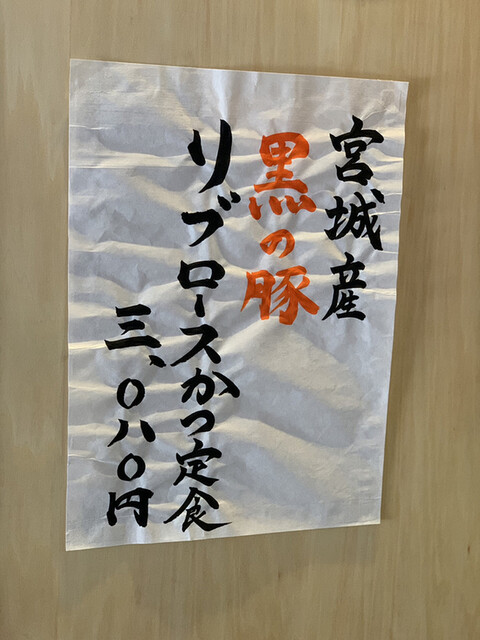 宮城産
黒の豚
リブロースかつ定食
三、〇八〇円